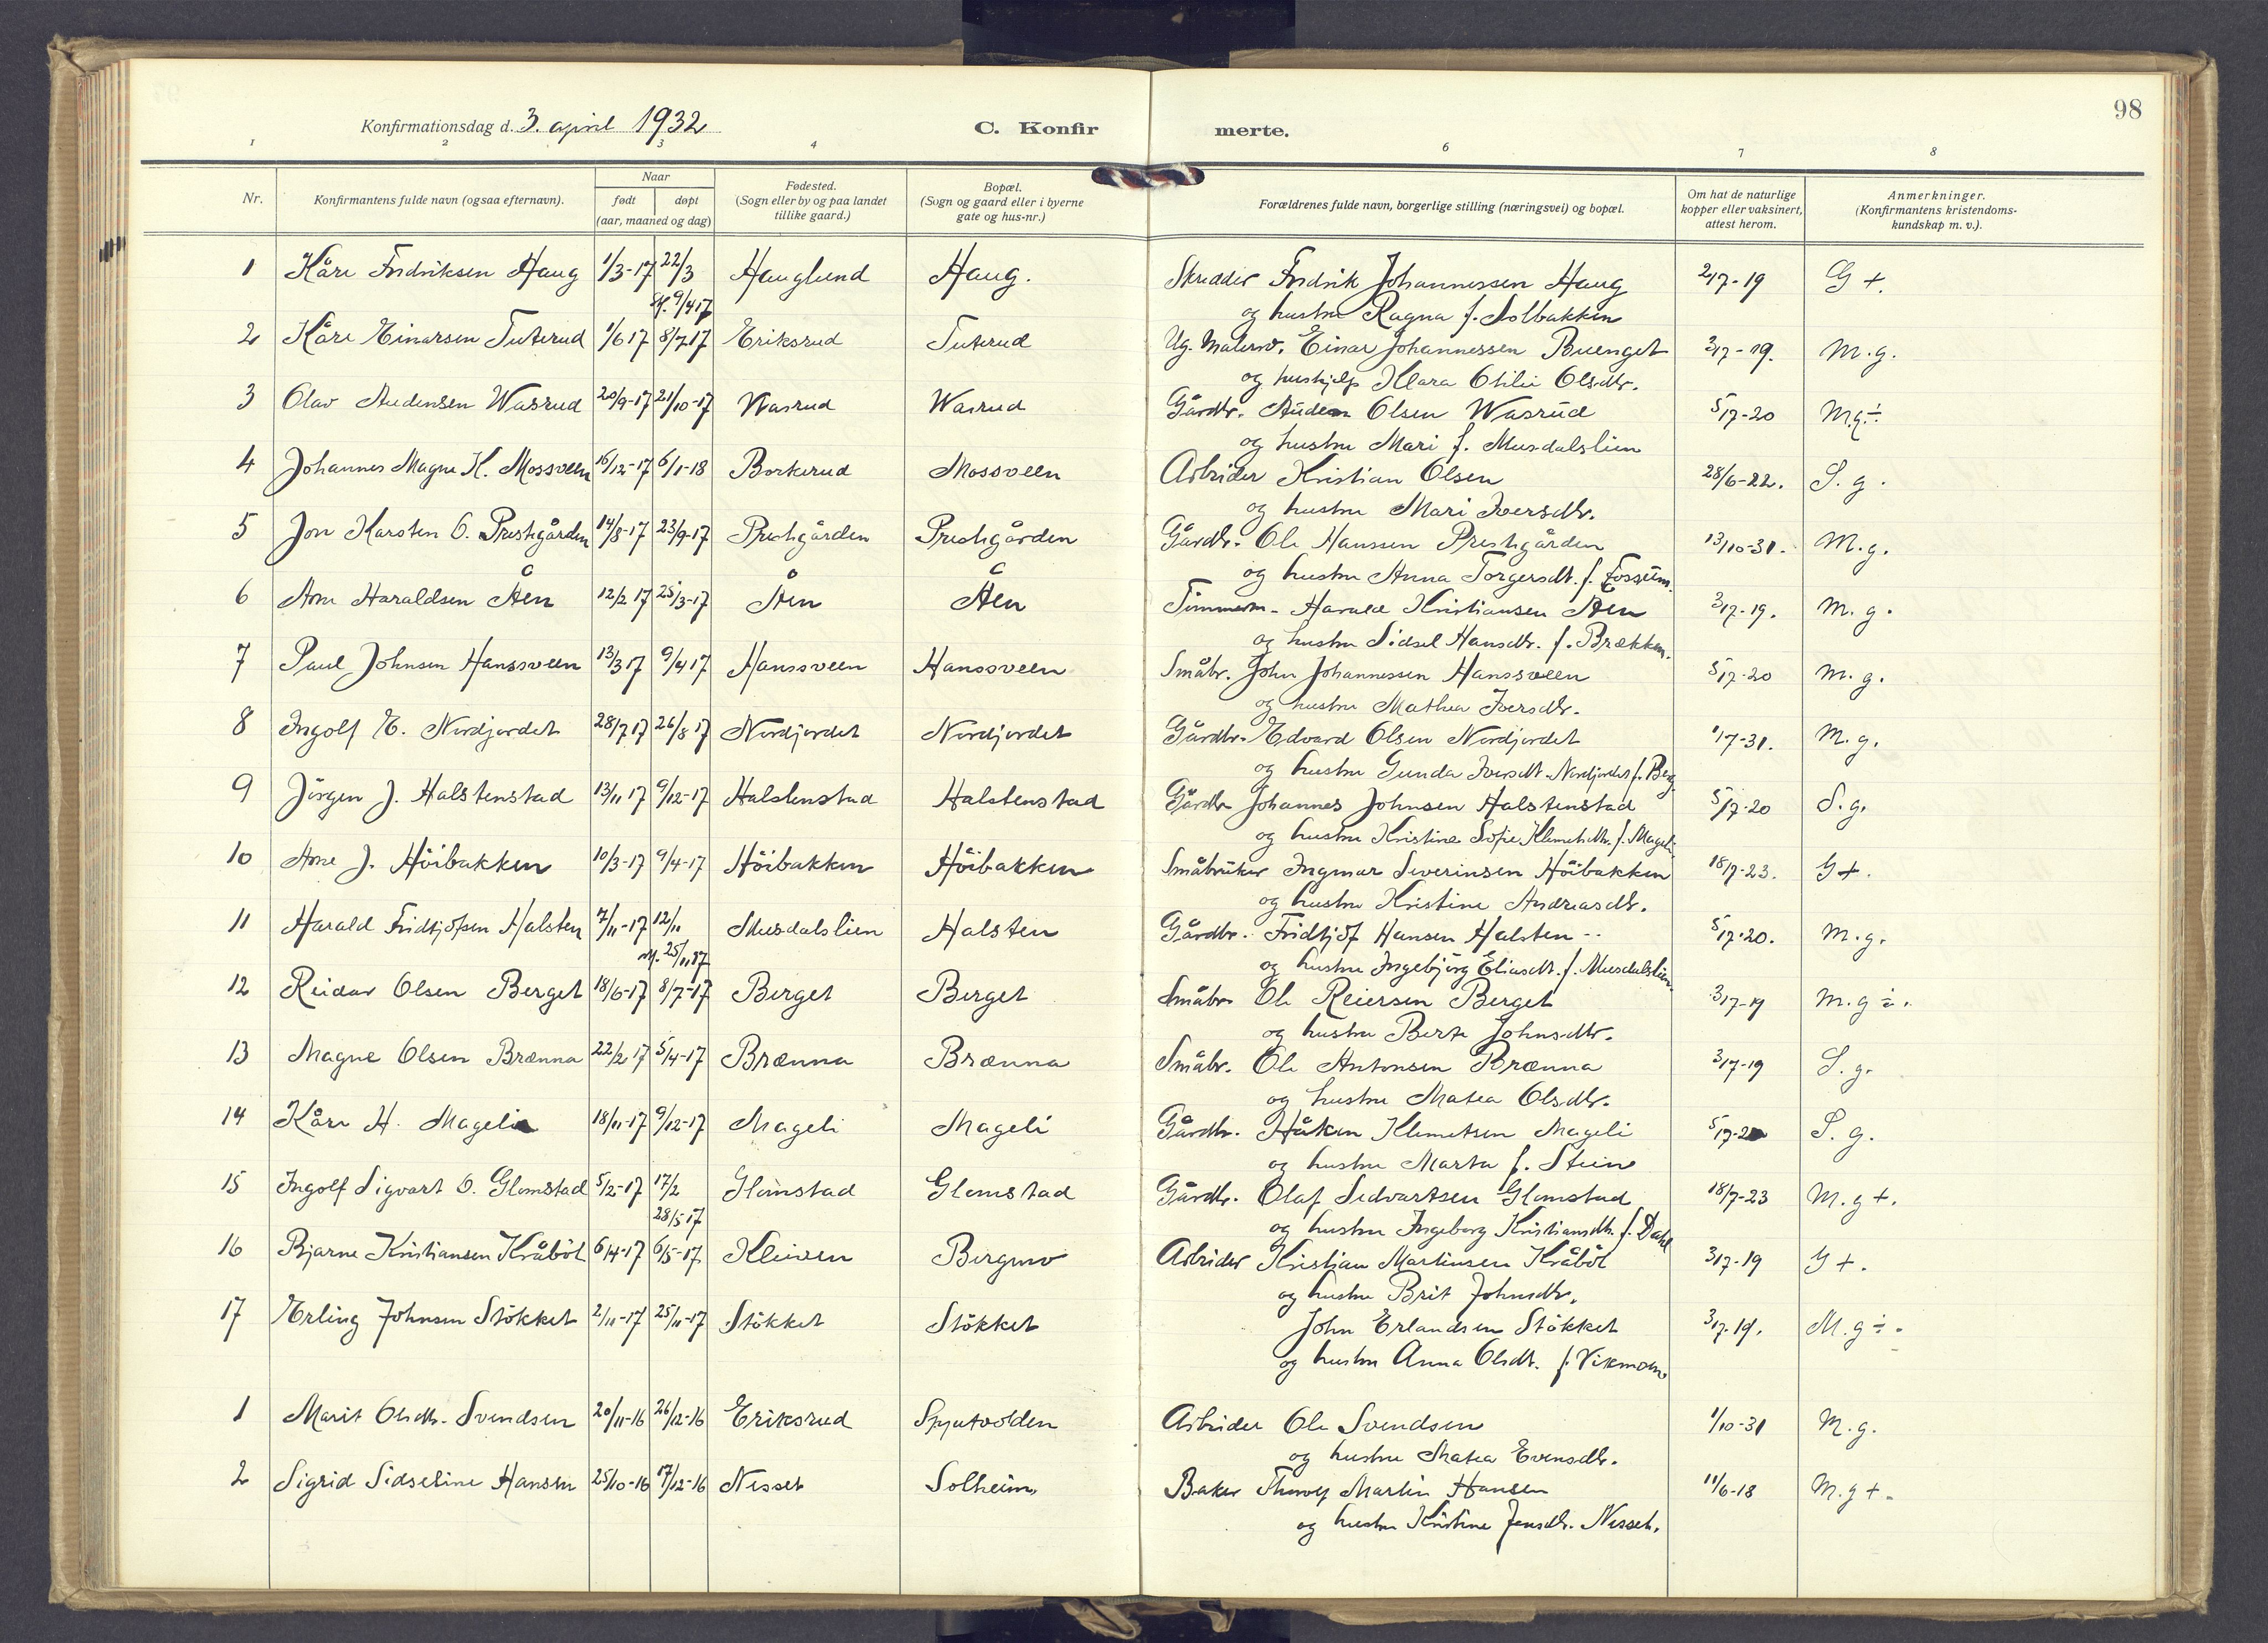 98
Konfirmationsdag d. 3. april 1932 C. Konfirmerte.
1 2 3 4 6 7 8
Nr. Konfirmantens fulde navn (ogsaa efternavn). Naar født døpt (aar, maaned og dag) Fødested. (Sogn eller by og paa landet tillike gaard.) Bopæl. (Sogn og gaard eller i byerne gate og hus-nr.) Forældrenes fulde navn, borgerlige stilling (næringsvei) og bopæl. Om hat de naturlige kopper eller vaksinert, attest herom. Anmerkninger. (Konfirmantens kristendoms-kundskap m. v.).
1 Kåre Fredriksen Haug 1/3-17 22/3 Hauglund Haug. Skredder Fredrik Johannessen Haug 2/7-19 G +.
9/4 17 og hustru Ragna f. Solbakken
2 Kåre Einarsen Tuterud 1/6 17 8/7 17 Eriksrud Tuterud Ug. Malersv. Einar Johannessen Buenget 3/7-19. M.g.
og hushjelp Klara Otilie Olsdtr.
3 Olav Audensen Wasrud 20/9-17 21/10-17 Wasrud Wasrud Gårdbr. Auden Olsen Wasrud 5/7-20 M.g. ÷
og hustru Mari f. Musdalslien
4 Johannes Magne K. Mossveen 16/12-17 6/1-18 Borkerud Mossveen Arbeider Kristian Olsen 28/6-22. S. g.
og hustru Mari Iversdtr.
5 Jon Karsten O. Prestgården 14/8-17 23/9-17 Prestgården Prestgården Gårdbr. Ole Hanssen Prestgården 13/10-31. M.g.
og hustru Anna Torgersdt. f. Fossum.
6 Arne Haraldsen Åen 12/2 17 25/3-17 Åen Åen Tømmerm. Harald Kristiansen Åen 3/7-19. M. g.
og hustru Sidsel Hansdtr. f. Brækken.
7 Paul Johnsen Hanssveen 13/3 17 9/4 17 Hanssveen Hanssveen Småbr. John Johannessen Hanssveen 5/7-20 M. g.
og hustru Mathea Iversdtr.
8 Ingolf E. Nordjordet 28/7 17 26/8 17 Nordjordet Nordjordet Gårdbr. Edvard Olsen Nordjordet 1/7-31. M. g.
og hustru Gunda Iversdt. Nordjordet f. Berg
9 Jörgen J. Halstenstad 13/11 17 9/12-17 Halstenstad Halstenstad Gårdbr Johannes Johnsen Halstenstad 5/7-20 S. g.
og hustru Kristine Sofie Klemetsdtr. f. Mageli
10 Arne J. Höibakken 10/3-17 9/4-17 Höibakken Höibakken Småbruker Ingmar Severinsen Höibakken 18/7-23. G +.
og hustru Kristine Andreasdtr.
11 Harald Fridtjofsen Halsten 7/11-17 12/11 Musdalslien Halsten Gårdbr. Fridtjof Hansen Halsten 5/7-20. M.g.
25/11 17 og hustru Ingebjörg Eliasdt. f. Musdalslien
12 Reidar Olsen Berget 18/6-17 8/7-17 Berget Berget Småbr. Ole Reiersen Berget 3/7-19 M.g ÷.
og hustru Berte Johnsdtr.
13 Magne Olsen Brænna 22/2 17 5/4-17 Brænna Brænna Småbr. Ole Antonsen Brænna 3/7-19 S. g.
og hustru Matea Olsdtr.
14 Kåre H. Mageli 18/11-17 9/12-17 Mageli Mageli Gårdbr. Håken Klemetsen Mageli 5/7-20 S. g.
og hustru Marta f. Steine
15 Ingolf Sigvart O. Glomstad 5/2-17 17/2 Glomstad Glomstad Gårdbr. Olaf Sedvartsen Glomstad 18/7-23 M. g +.
28/5 17 og hustru Ingeborg Kristiansdtr. f. Dahl
16 Bjarne Kristiansen Kråböl 6/4-17 6/5-17 Kleiven Bergmo Arbeider Kristian Martinsen Kråböl 3/7-19 G +.
og hustru Brit Johnsdtr.
17 Erling Johnsen Stökket 2/11-17 25/11-17 Stökket Stökket John Erlandsen Stökket 3/7-19. M. g ÷.
og hustru Anna Olsdt. f. Vikmoen
1 Marit Olsdtr. Svendsen 20/11-16 26/12-16 Eriksrud Spjutvolden Arbeider Ole Svendsen 1/10-31 M. g.
og hustru Matea Evensdtr.
2 Sigrid Sidseline Hansen 25/10-16 17/12-16 Nesset Solheim. Baker Martin Hansen 11/6-18 M. g +.
og hustru Kristine Jensdtr. Nesset.